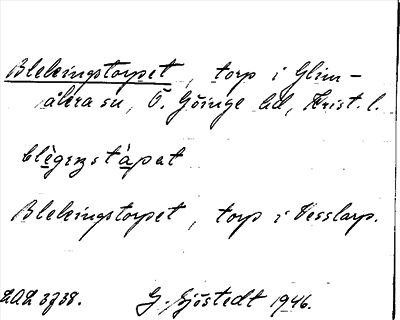 Blekingstorpet, torp i Glim-
åkra sn, Ö. Göinge hd, Krist. l.
blègɪŋstàpət
Blekingstorpet, torp i Vesslarp.
G. Sjöstedt 1946.